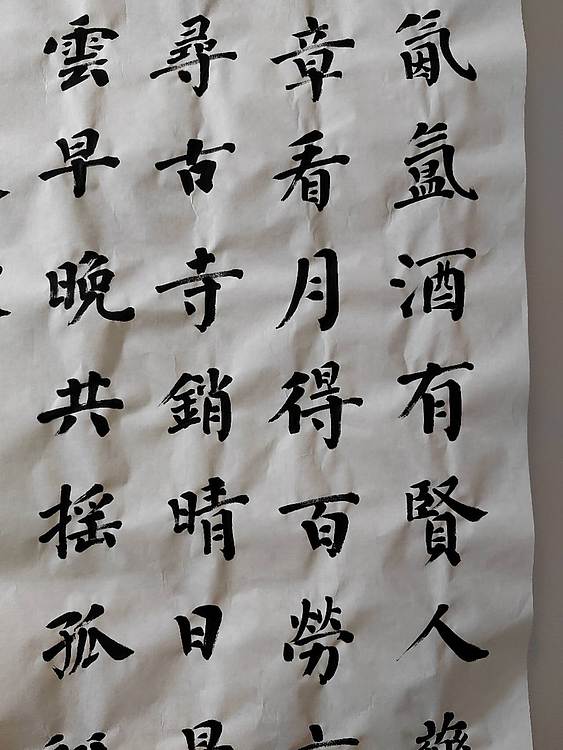 氤氳酒有賢人
章看月得百勞
尋古寺銷晴日
雲早晚共摇孤